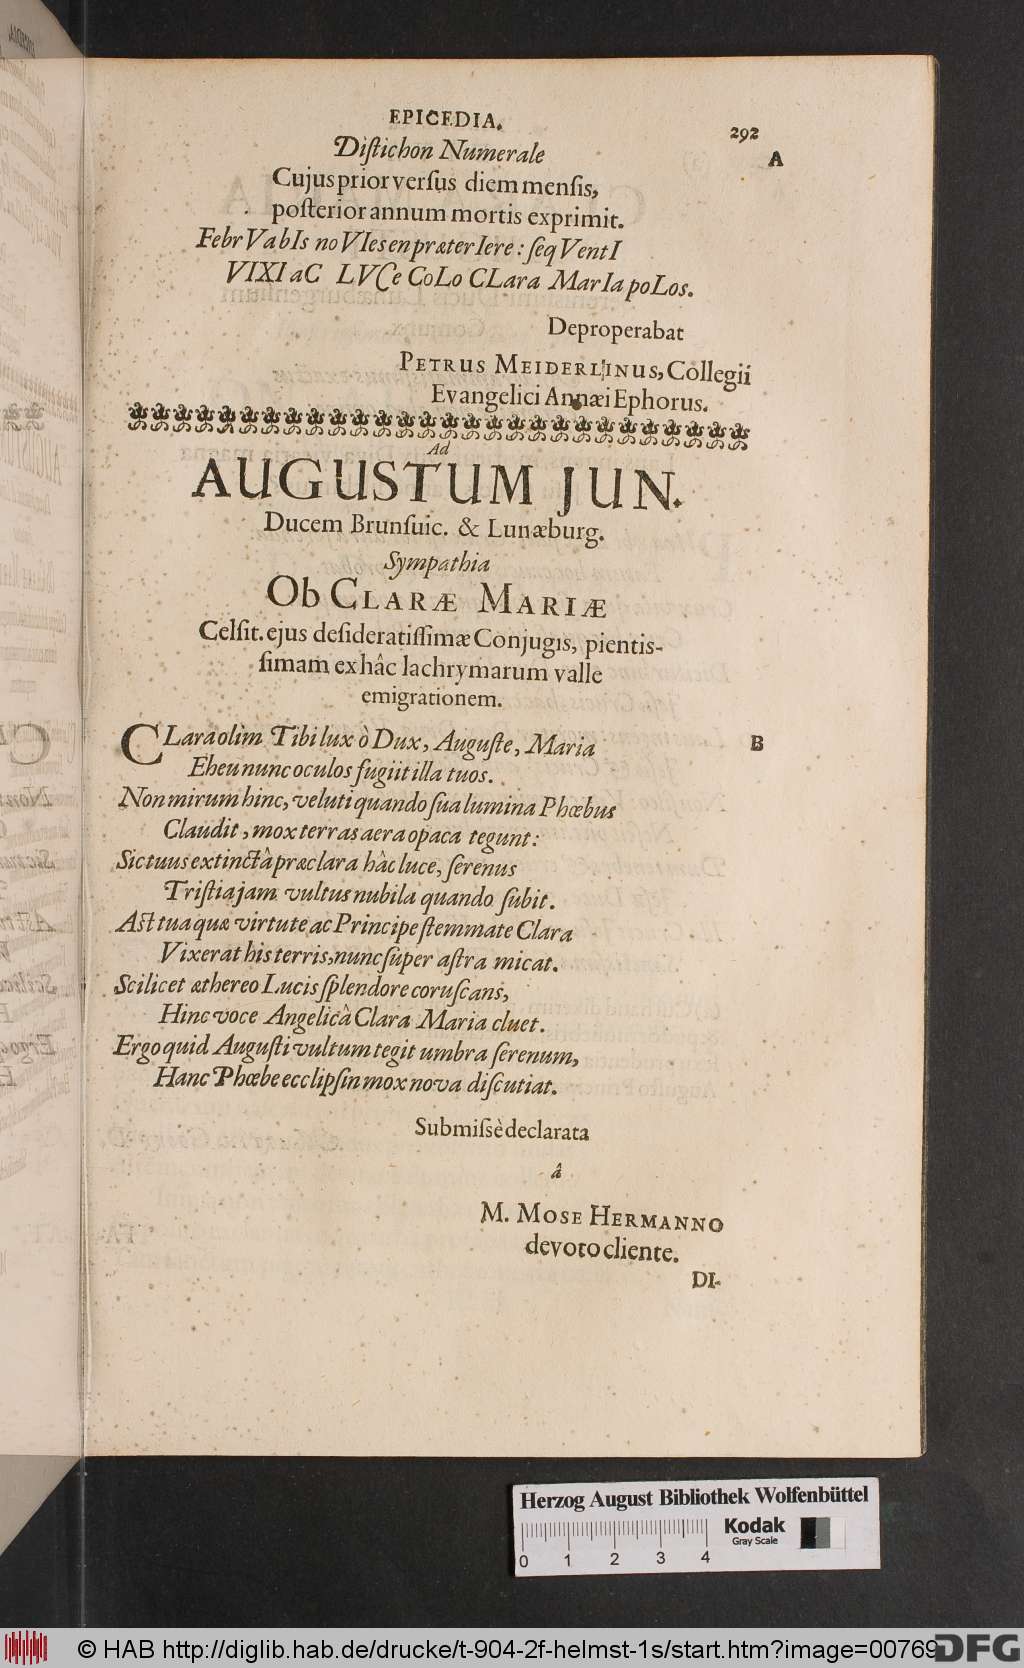 EPICEDIA.
292
Distichon Numerale
A
Cujus prior versus diem mensis,
posterior annum mortis exprimit.
FebrVabIs noVIes en præterIere: seqVentI
VIXI aC LVCe CoLo CLara MarIa poLos.
Deproperabat
PETRUS MEIDERLINUS, Collegii
Evangelici Annæi Ephorus.
Ad
AUGUSTUM JUN.
Ducem Brunsuic. & Lunæburg.
Sympathia
Ob CLARÆ MARIÆ
Celsit. ejus desideratissimæ Conjugis, pientis-
simam ex hâc lachrymarum valle
emigrationem.
CLara olim Tibi lux ò Dux, Auguste, Maria
B
Eheu nunc oculos fugiit illa tuos.
Non mirum hinc, veluti quando sua lumina Phœbus
Claudit, mox terras aera opaca tegunt:
Sic tuus extinctâ præclara hâc luce, serenus
Tristia jam vultus nubila quando subit.
Ast tua quæ virtute ac Principe stemmate Clara
Vixerat his terris, nunc super astra micat.
Scilicet æthereo Lucis splendore coruscans,
Hinc voce Angelicâ Clara Maria cluet.
Ergo quid Augusti vultum tegit umbra serenum,
Hanc Phœbe ecclipsin mox nova discutiat.
Submissè declarata
â
M. MOSE HERMANNO
devoto cliente.
DI-
Herzog August Bibliothek Wolfenbüttel
Kodak
Gray Scale
0 1 2 3 4
© HAB http://diglib.hab.de/drucke/t-904-2f-helmst-1s/start.htm?image=00769
DFG